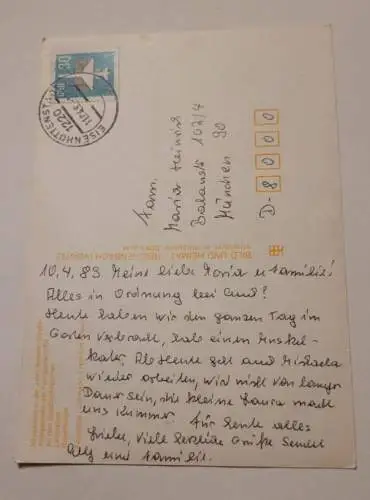 10.4.89 Meine liebe Maria u Familie!
Alles in Ordnung bei Euch?
Heute haben wir den ganzen Tag im
Garten verbracht, habe einen Muskel-
kater, Ab Heute geht auch Michaela
wieder arbeiten, wird nicht von langer
Dauer sein, die kleine Laura macht
uns Kummer. Für heute alles
Liebe, viele herzliche Grüße sendet
und Familie.
Fam.
Maria Heinrich
Balanstr 102/4
München 90
D-8000
BILD UND HEIMAT REICHENBACH (VOGTL)
1220
EISENHÜTTENSTADT
30
DDR